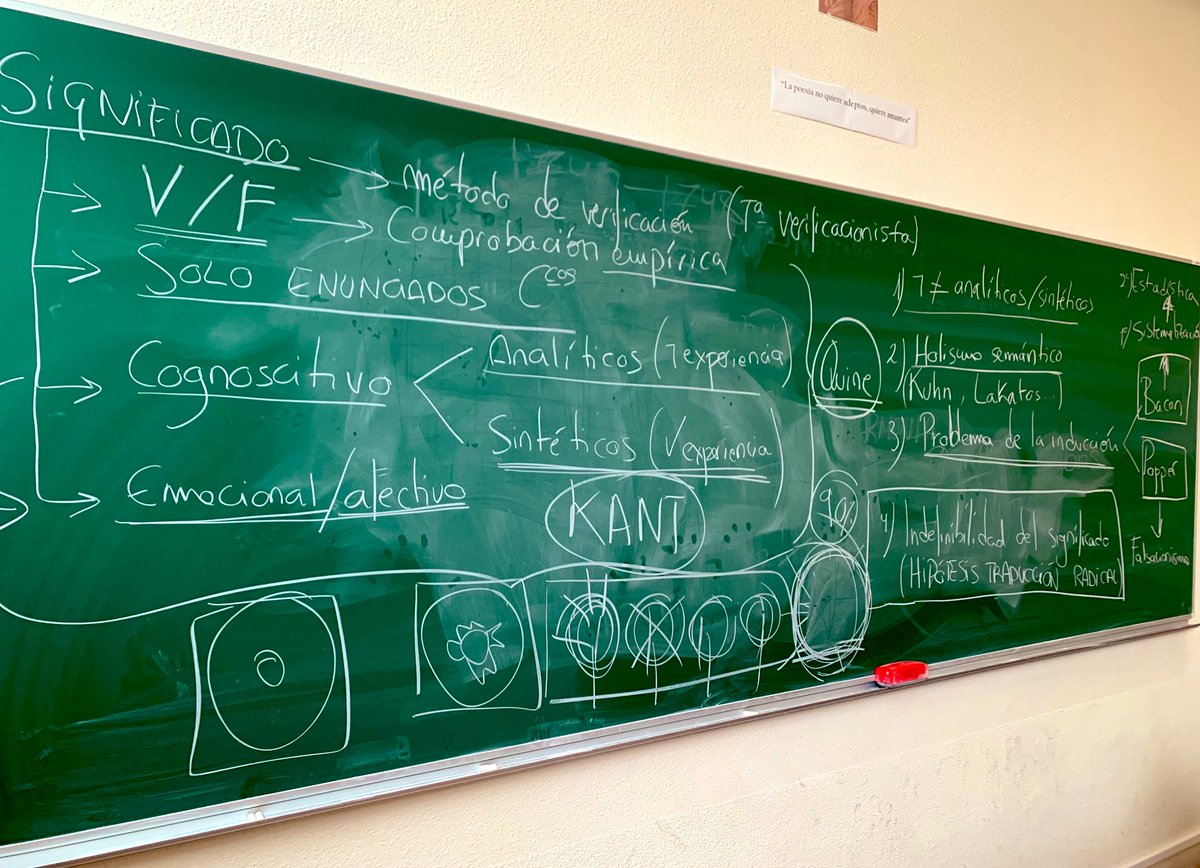 "La poesía no quiere adeptos, quiere amantes"
SIGNIFICADO
V/F
método de verificación (Tª verificacionista)
Comprobación empírica
SOLO ENUNCIADOS Cᶜᵒˢ
Cognoscitivo
Analíticos (7 experiencia)
Sintéticos (V experiencia)
Emocional/afectivo
KANT
Quine
1) 7 ≠ analíticos/sintéticos
2) Holismo semántico
(Kuhn, Lakatos...)
3) Problema de la inducción
4) Indefinibilidad del significado
(HIPÓTESIS TRADUCCIÓN RADICAL
2º) Estadística
1º)
Bacon
Popper
Falsacionismo